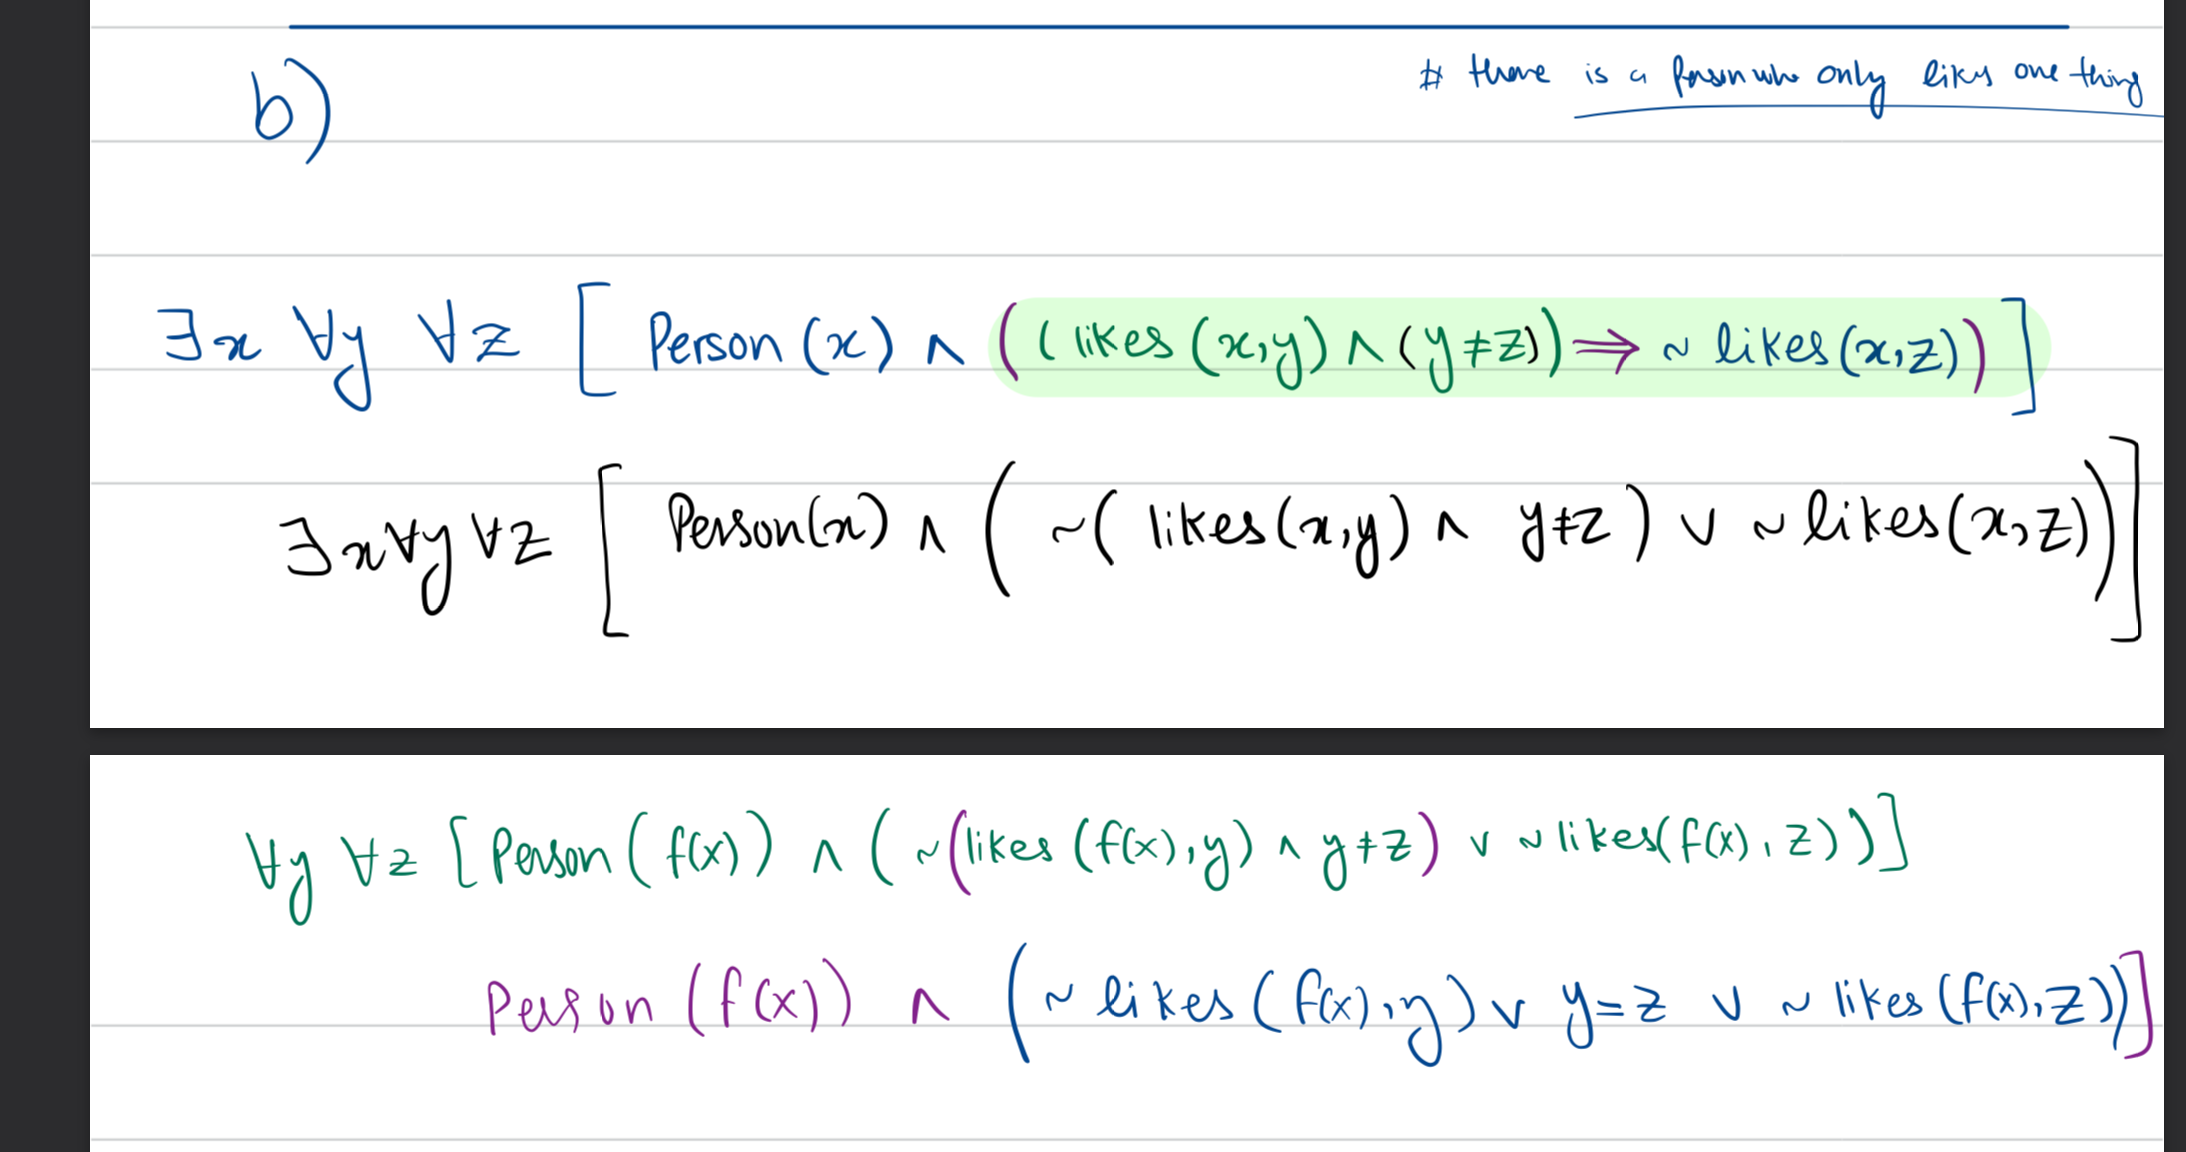 b)
# there is a person who only likes one thing
∃x ∀y ∀z [ Person (x) ∧ ( ( likes (x,y) ∧ (y≠z)) ⇒ ~ likes (x,z) ) ]
∃x ∀y ∀z [ Person(x) ∧ ( ~( likes (x,y) ∧ y≠z ) ∨ ~ likes (x,z) ) ]
∀y ∀z [ Person ( f(x) ) ∧ ( ~(likes (f(x),y) ∧ y≠z ) ∨ ~ likes( f(x), z ) ) ]
Person (f(x)) ∧ ( ~ likes ( f(x),y ) ∨ y=z ∨ ~ likes (f(x),z) ) ]